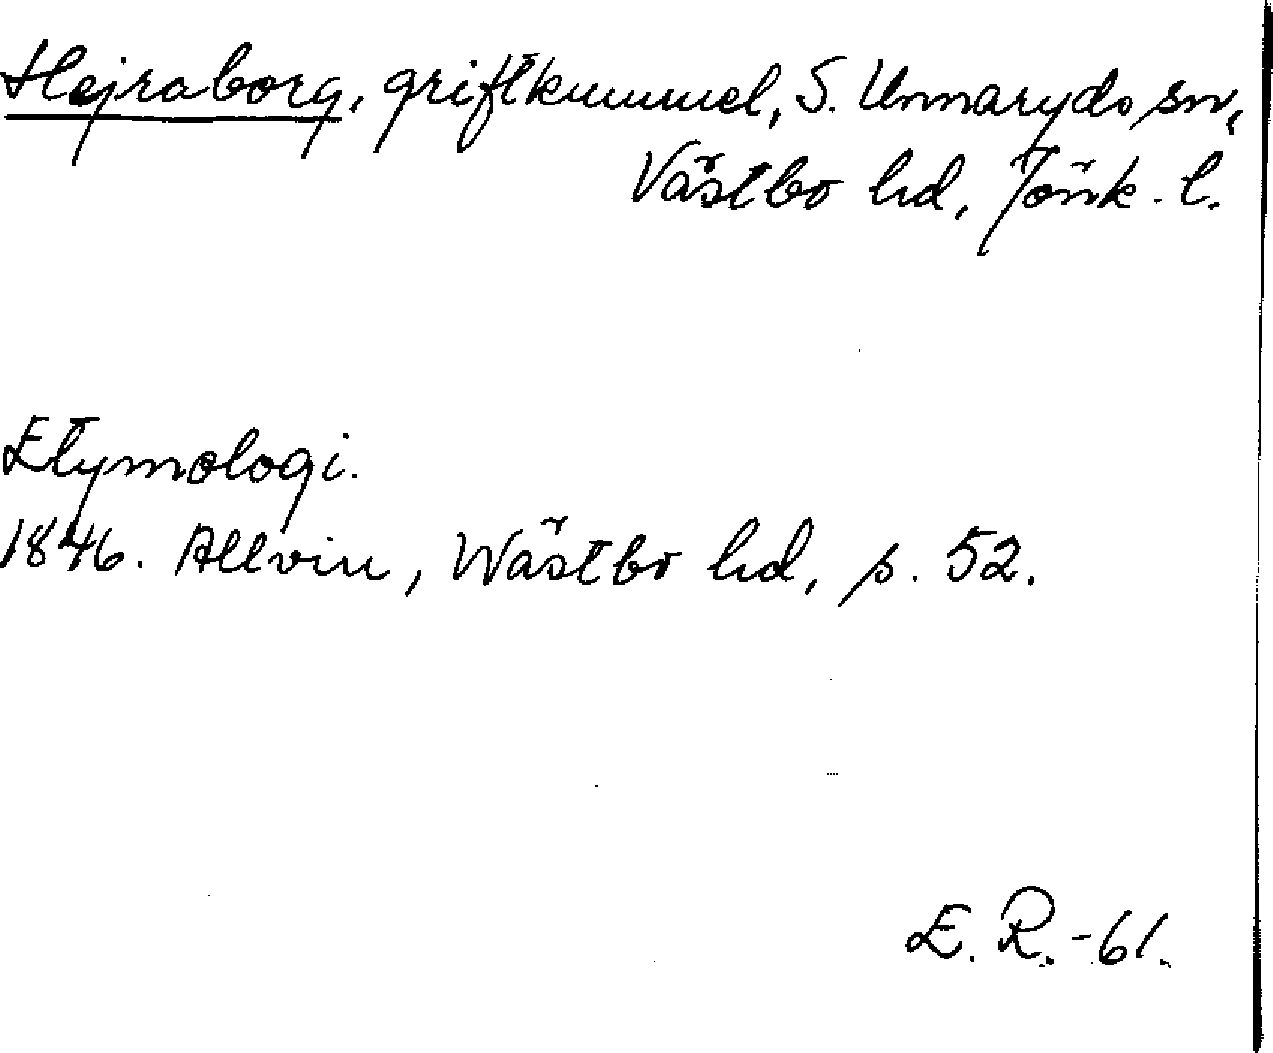 Hejraborg, griftkummel, S. Unnaryds sn,
Västbo hd, Jönk. l.
Etymologi.
1846. Allvin, Wästbo hd, s. 52.
E. R. -61.